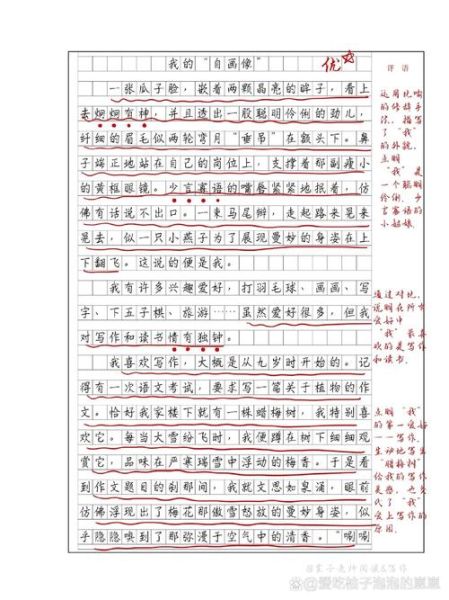 我的“自画像”
优
评语
一张瓜子脸,嵌着两颗晶亮的眸子,看上
去炯炯有神,并且透出一股聪明伶俐的劲儿,
纤细的眉毛似两轮弯月“垂吊”在额头下。鼻
子端正地站在自己的岗位上,支撑着那副瘦小
的黄框眼镜。少言寡语的嘴唇紧紧地抿着,仿
佛有话说不出口。一束马尾辫,走起路来晃来
晃去,似一只小燕子为了展现曼妙的身姿在上
下翻飞。这说的便是我。
我有许多兴趣爱好,打羽毛球、画画、写
字、下五子棋、旅游……虽然爱好很多,但我
对写作和读书情有独钟。
我喜欢写作,大概是从九岁时开始的。记
得有一次语文考试,要求写一篇关于植物的作
文。恰好我家楼下就有一株腊梅树,我特别喜
欢它。每当大雪纷飞时,我便蹲在树下细细观
赏它,品味在严寒瑞雪中浮动的梅香。于是看
到作文题目的刹那间,我就文思如泉涌,眼前
仿佛浮现出了梅花那傲雪怒放的曼妙身姿,似
乎隐隐嗅到了那弥漫于空气中的清香。“唰唰
运用比喻
的修辞手
法,描写
了“我”
的外貌,
点明
“我”是
一个聪明
伶俐、少
言寡语的
小姑娘
通过对比,
说明在所有
爱好中
“我”最喜
欢的是写作
和读书。
点明“我”
的第一爱好
——写作,
生动地写出
“腊梅树”
给我的写作
灵感,也交
代了“我”
爱上写作的
原因。
@爱吃柚子泡泡的熏熏